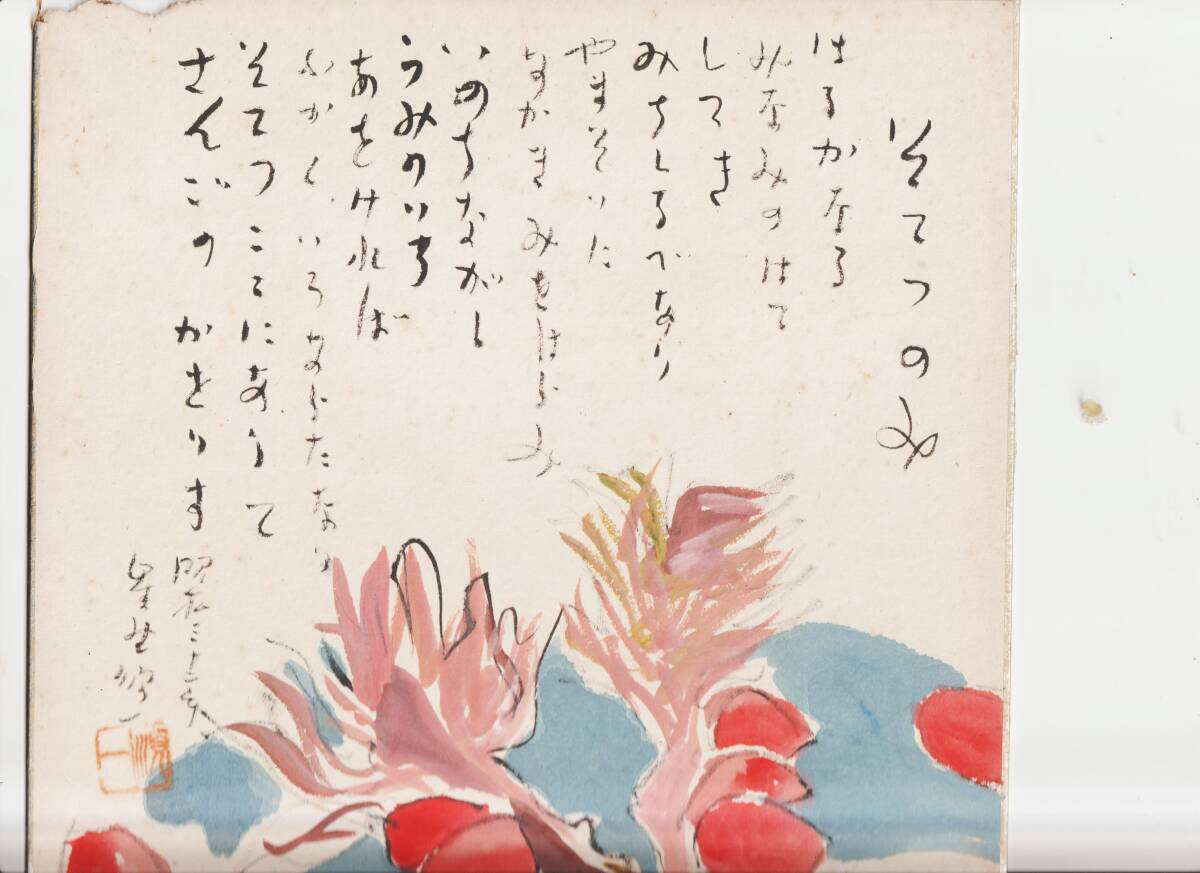 そてつのみ
はるかなる
みなみのはて
してき
みちしるべなり
やまそいに
なかき みをはらみ
いのちながし
うみのいち
あをければ
ふかく いろなられたなり
そてつ ここにありて
さんごの かをりす
昭和三十年
順一